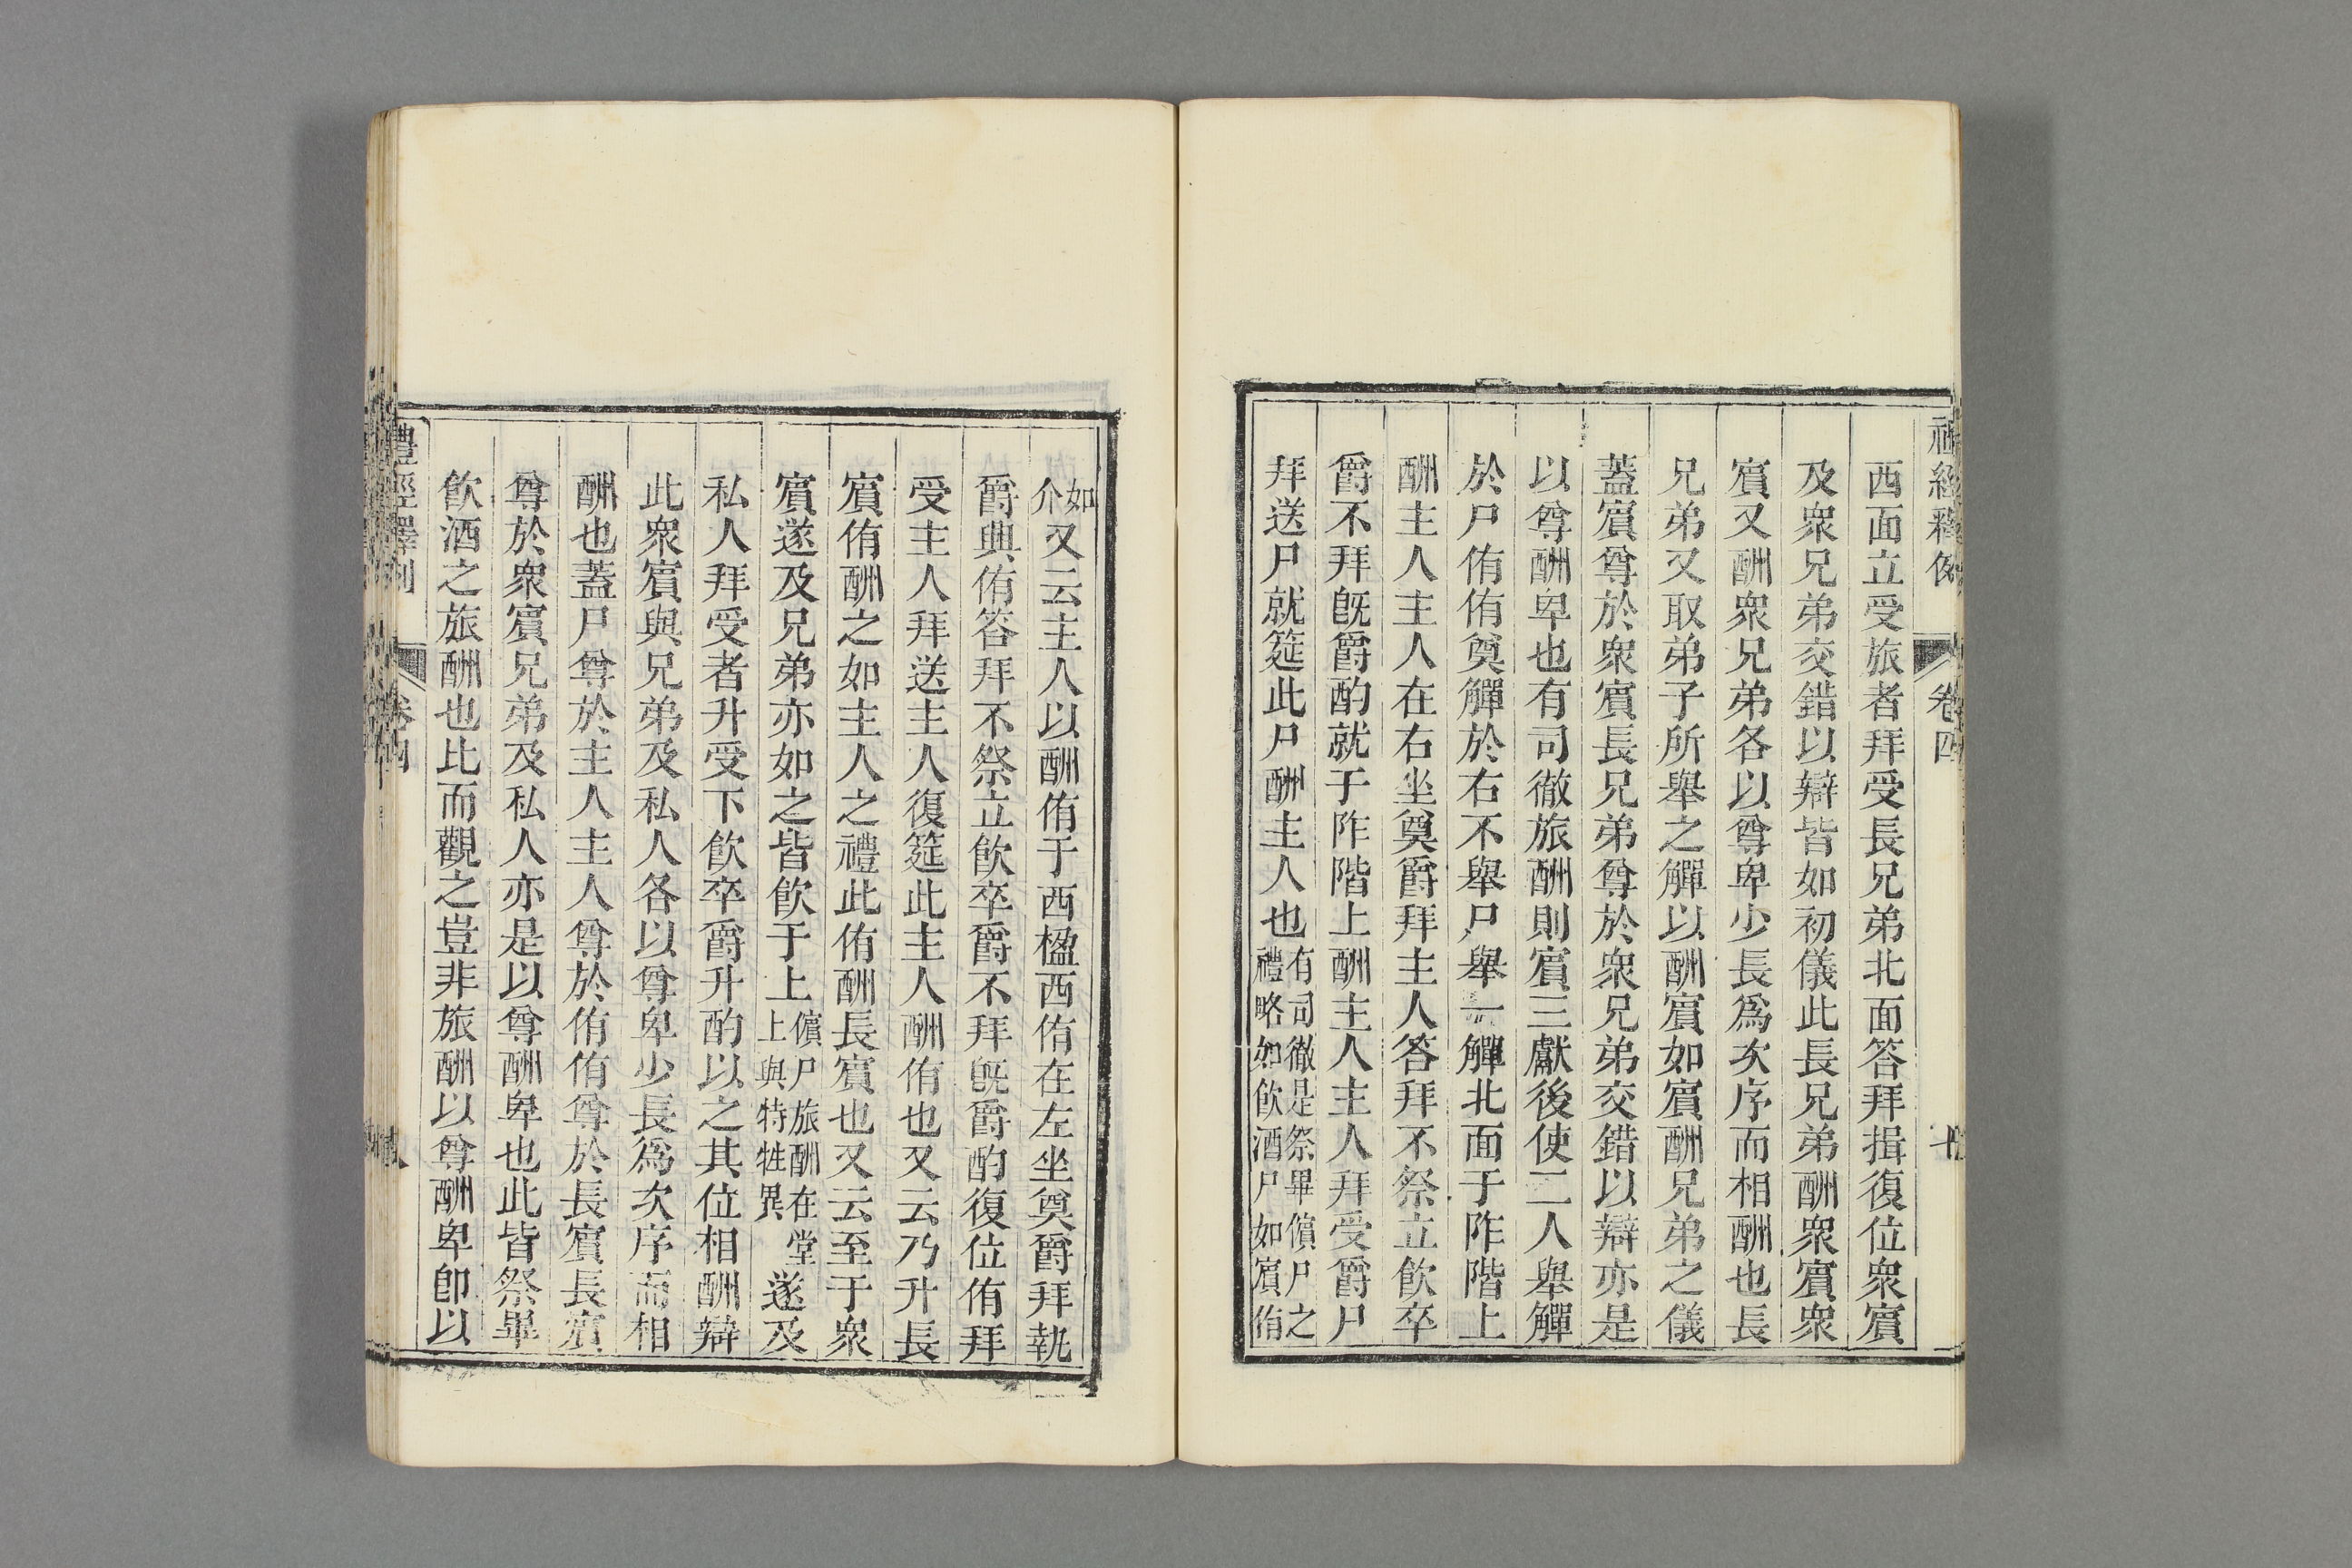 西面立受旅者拜受長兄弟北面答拜揖復位衆賓
及衆兄弟交錯以辯皆如初儀此長兄弟酬衆賓衆
賓又酬衆兄弟各以尊卑少長爲次序而相酬也長
兄弟又取弟子所舉之觶以酬賓如賓酬兄弟之儀
蓋賓尊於衆賓長兄弟尊於衆兄弟交錯以辯亦是
以尊酬卑也有司徹旅酬則賓三獻後使二人舉觶
於尸侑侑奠觶於右不舉尸舉一觶北面于阼階上
酬主人主人在右坐奠爵拜主人答拜不祭立飮卒
爵不拜旣爵酌就于阼階上酬主人主人拜受爵尸
拜送尸就筵此尸酬主人也有司徹是祭畢儐尸之禮略如飮酒尸如賓侑
如介又云主人以酬侑于西楹西侑在左坐奠爵拜執
爵興侑答拜不祭立飮卒爵不拜旣爵酌復位侑拜
受主人拜送主人復筵此主人酬侑也又云乃升長
賓侑酬之如主人之禮此侑酬長賓也又云至于衆
賓遂及兄弟亦如之皆飮于上儐尸旅酬在堂上與特牲異遂及
私人拜受者升受下飮卒爵升酌以之其位相酬辯
此衆賓與兄弟及私人各以尊卑少長爲次序而相
酬也蓋尸尊於主人主人尊於侑侑尊於長賓長賓
尊於衆賓兄弟及私人亦是以尊酬卑也此皆祭畢
飮酒之旅酬也比而觀之豈非旅酬以尊酬卑卽以
禮經釋例 卷四